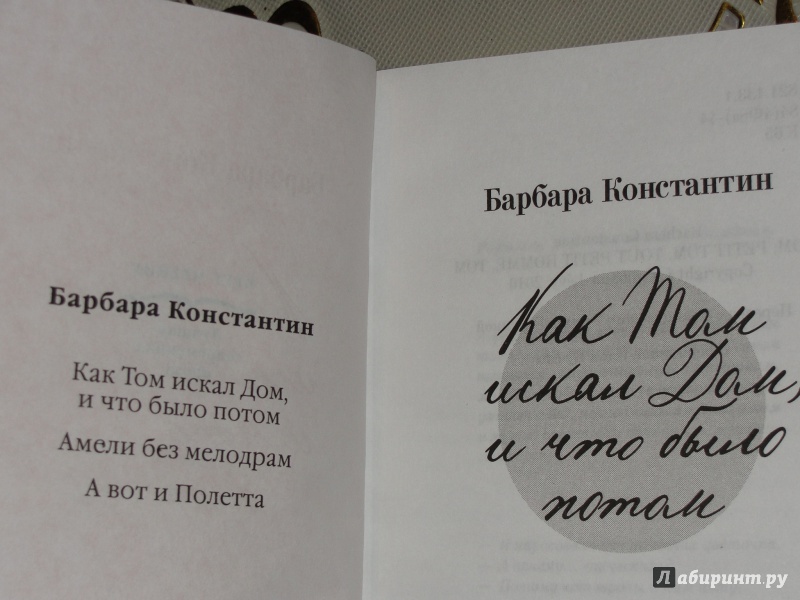 Барбара Константин
Как Том искал Дом,
и что было потом
Амели без мелодрам
А вот и Полетта
Барбара Константин
Как Том
искал Дом,
и что было
потом
Лабиринт.ру